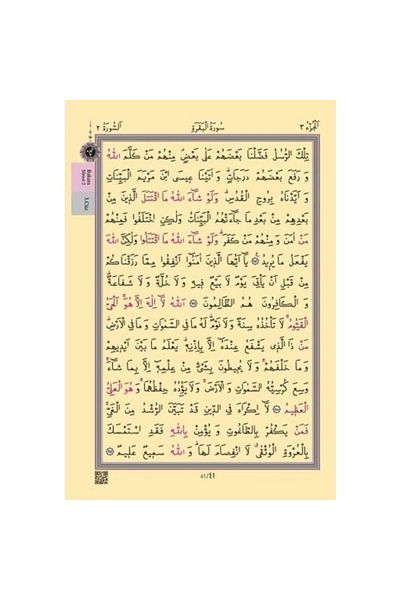 الجزء ٣ سورة البقرة السورة ٢
تِلْكَ الرُّسُلُ فَضَّلْنَا بَعْضَهُمْ عَلَى بَعْضٍ مِنْهُمْ مَنْ كَلَّمَ اللّٰهُ
وَ رَفَعَ بَعْضَهُمْ دَرَجَاتٍ وَ اٰتَيْنَا عِيسَى ابْنَ مَرْيَمَ الْبَيِّنَاتِ
وَ اَيَّدْنَاهُ بِرُوحِ الْقُدُسِ وَ لَوْ شَاءَ اللّٰهُ مَا اقْتَتَلَ الَّذِينَ مِنْ
بَعْدِهِمْ مِنْ بَعْدِ مَا جَاءَتْهُمُ الْبَيِّنَاتُ وَلٰكِنِ اخْتَلَفُوا فَمِنْهُمْ
مَنْ اٰمَنَ وَ مِنْهُمْ مَنْ كَفَرَ وَلَوْ شَاءَ اللّٰهُ مَا اقْتَتَلُوا وَلٰكِنَّ اللّٰهَ
يَفْعَلُ مَا يُرِيدُ يَا اَيُّهَا الَّذِينَ اٰمَنُوا اَنْفِقُوا مِمَّا رَزَقْنَاكُمْ
مِنْ قَبْلِ اَنْ يَأْتِيَ يَوْمٌ لَا بَيْعٌ فِيهِ وَ لَا خُلَّةٌ وَ لَا شَفَاعَةٌ
وَ الْكَافِرُونَ هُمُ الظَّالِمُونَ اَللّٰهُ لَا اِلٰهَ اِلَّا هُوَ الْحَيُّ
الْقَيُّومُ لَا تَأْخُذُهُ سِنَةٌ وَلَا نَوْمٌ لَهُ مَا فِي السَّمٰوَاتِ وَ مَا فِي الْاَرْضِ
مَنْ ذَا الَّذِي يَشْفَعُ عِنْدَهُ اِلَّا بِاِذْنِهِ يَعْلَمُ مَا بَيْنَ اَيْدِيهِمْ
وَ مَا خَلْفَهُمْ وَ لَا يُحِيطُونَ بِشَيْءٍ مِنْ عِلْمِهِ اِلَّا بِمَا شَاءَ
وَسِعَ كُرْسِيُّهُ السَّمٰوَاتِ وَ الْاَرْضَ وَلَا يَؤُدُهُ حِفْظُهُمَا وَ هُوَ الْعَلِيُّ
الْعَظِيمُ لَا اِكْرَاهَ فِي الدِّينِ قَدْ تَبَيَّنَ الرُّشْدُ مِنَ الْغَيِّ
فَمَنْ يَكْفُرْ بِالطَّاغُوتِ وَ يُؤْمِنْ بِاللّٰهِ فَقَدِ اسْتَمْسَكَ
بِالْعُرْوَةِ الْوُثْقٰى لَا انْفِصَامَ لَهَا وَ اللّٰهُ سَمِيعٌ عَلِيمٌ
Bakara
Sûresi 2
3.Cüz